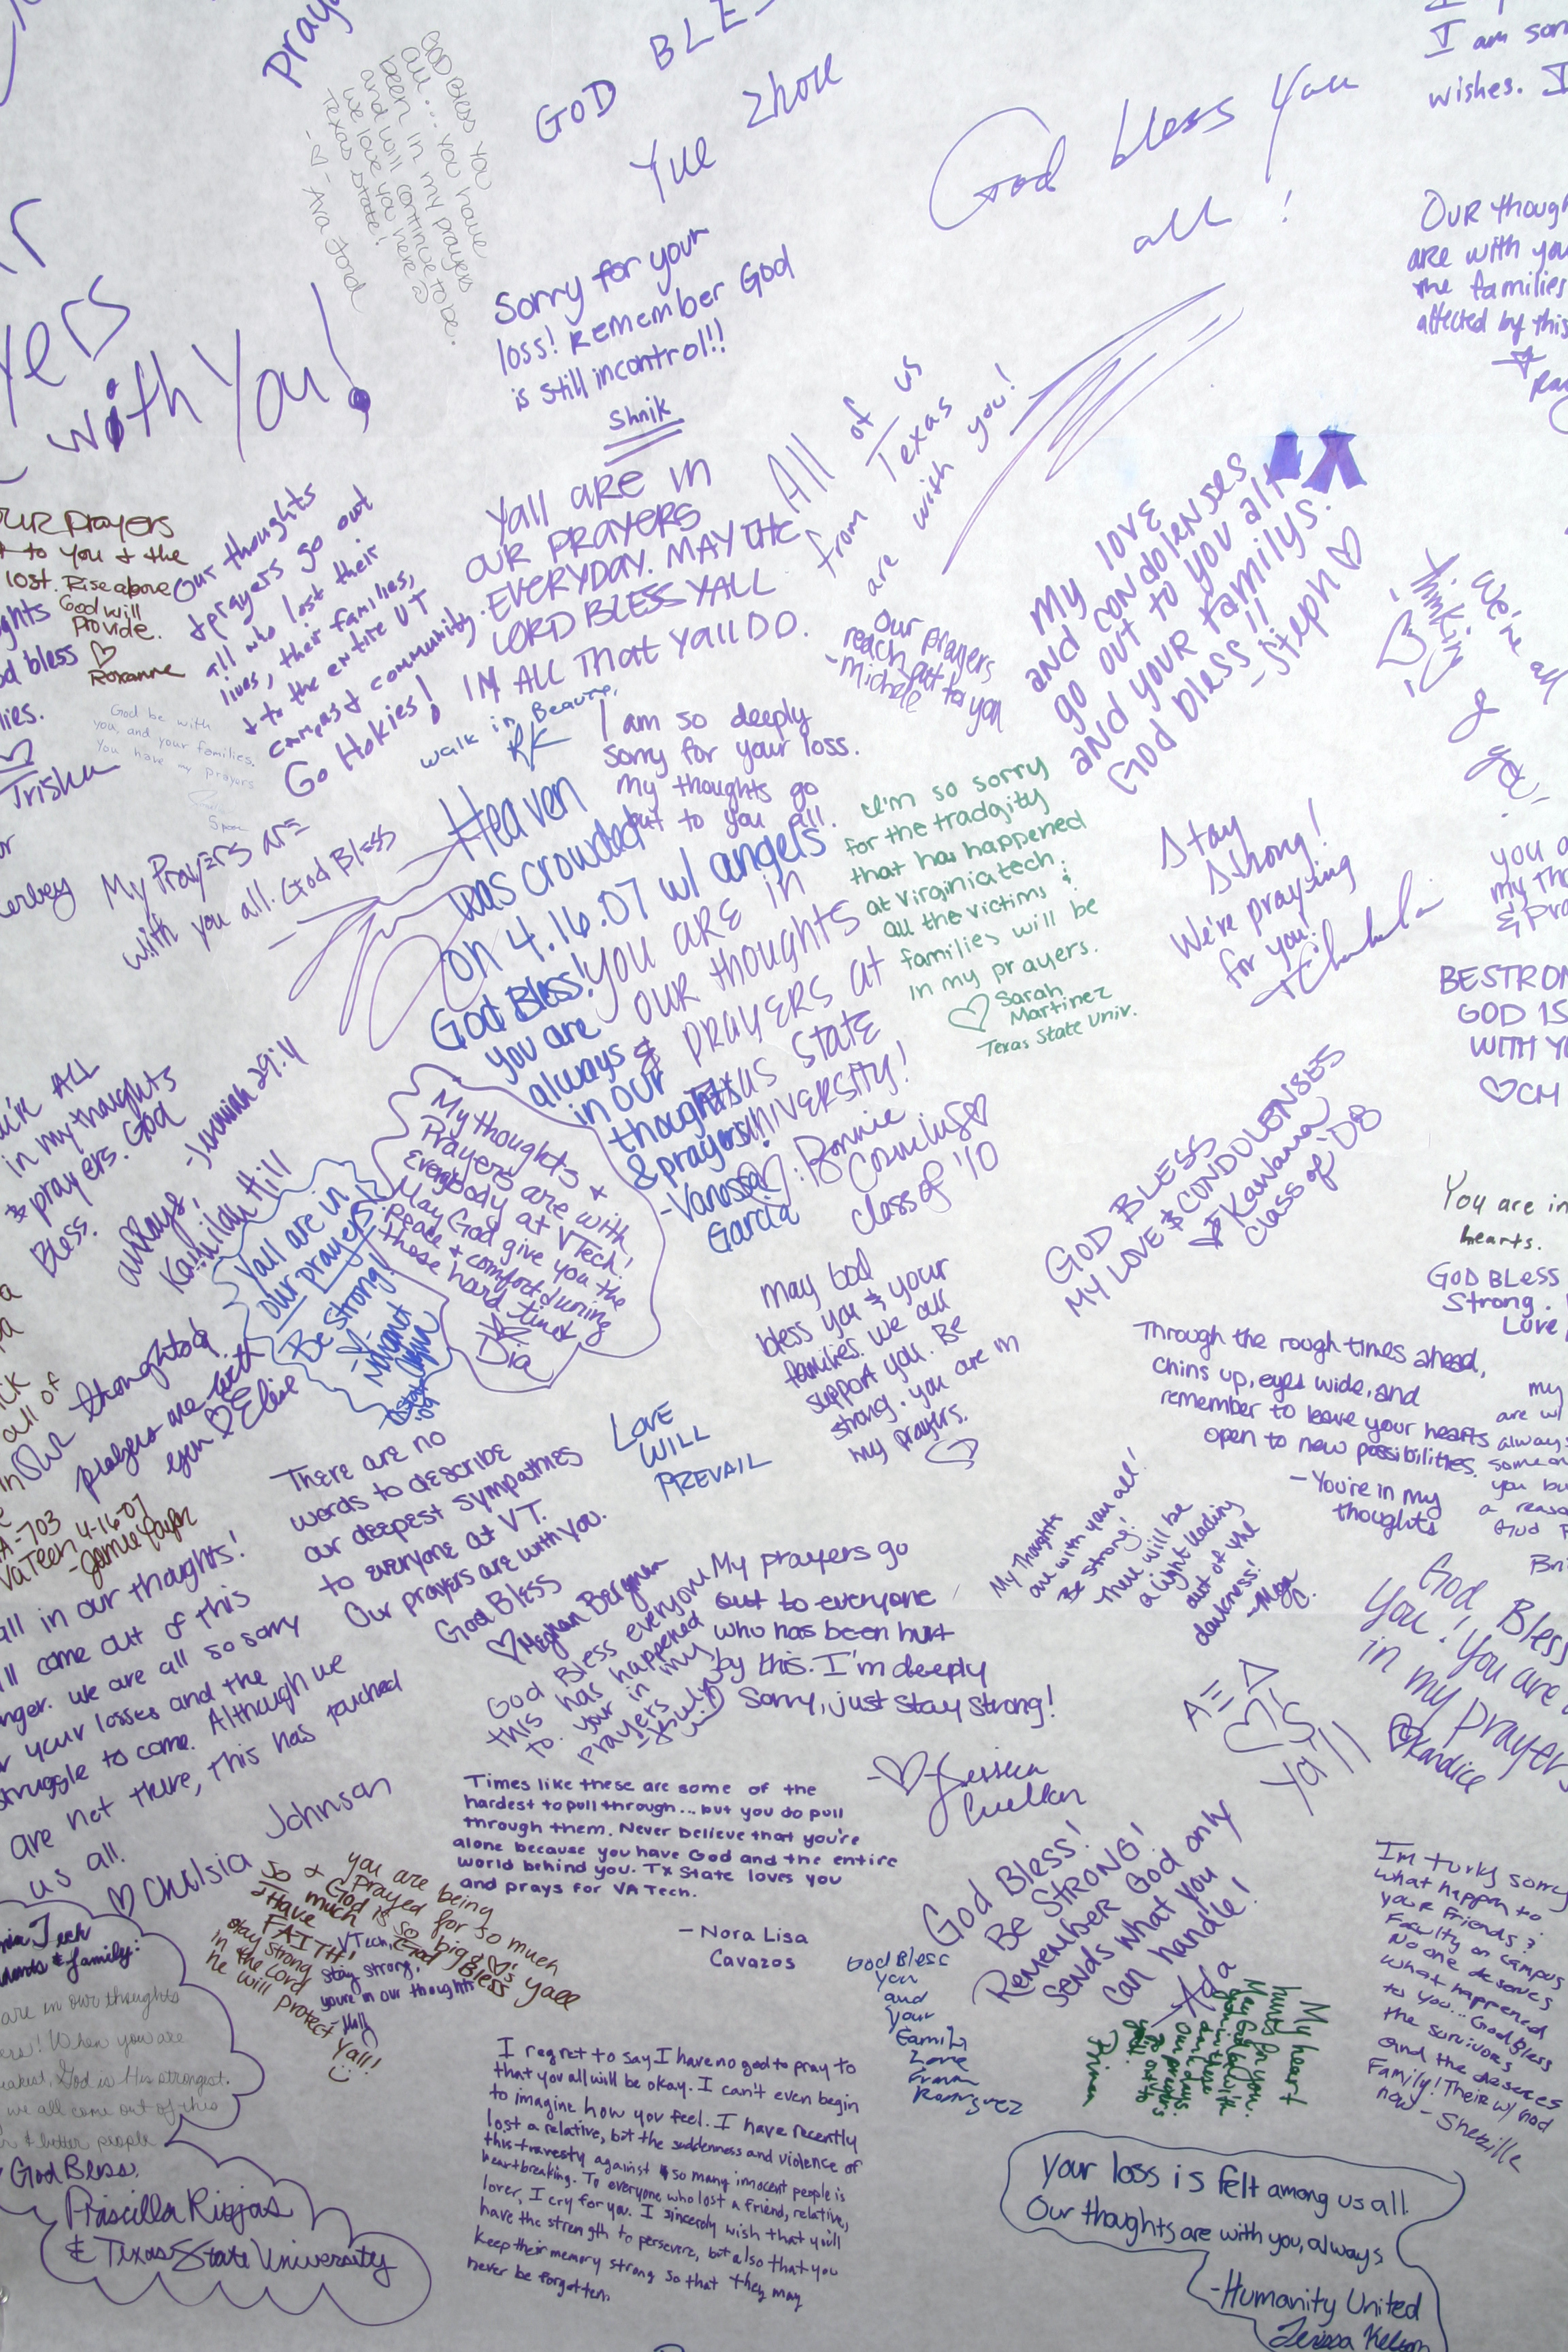 Pray
God Bless you
all... you have
been in my prayers
and will continue to be.
we love you here @
Texas State!
- ♡ - Ava Ford
GOD BLES
Yue Zhou
God bless you
all!
I am sor
wishes. I
Our though
are with you
the families
affected by this
yers
with You!
Sorry for your
loss! Remember God
is still incontrol!!
Shnik
All of us
from Texas
are with you!
Yall are in
our prayers
everyday. May the
Lord bless yall
in all that yall do.
our prayers
t to you & the
lost. Rise above
God will
Provide.
♡
Roxanne
ghts
od bless
lies.
♡
Trisha
Our thoughts
& prayers go out
all who lost their
lives, their families,
& to the entire VT
campus & community.
Go Hokies!
God be with
you, and your families.
You have my prayers
walk in Beauty,
RK
Our prayers
reach out to you
- Michele
My love
and condolenses
go out to you all
and your familys.
God bless!!
- Steph ♡
Thinking
We're all
I am so deeply
sorry for your loss.
My thoughts go
out to you all.
My Prayers are
with you all. God Bless
Heaven
was crowded
on 4.16.07 w/ angels
God Bless!
you are
always
in our
thoughts
& prayers!
- Vanessa
Garcia
You are in
our thoughts
& prayers at
Texas State
University!
♡. Bonnie
Cornelius ♡
class of '10
I'm so sorry
for the tradgity
that has happened
at Virginia tech.
all the victims &
families will be
in my prayers.
♡ Sarah
Martinez
Texas State Univ.
Stay
Strong!
We're praying
for you!
you a
my tho
& pra
BE STRON
GOD IS
WITH YO
♡ CM
u're ALL
in my thoughts
& prayers. God
Bless.
- Jeremiah 29:11
always,
Kamilah Hill
Yall are in
our prayers!
Be Strong!
My thoughts +
Prayers are with
everybody at VTech!
May God give you the
peace + comfort during
these hard times
Dia
GOD BLESS
MY LOVE & CONDOLENSES
Kawana
class of '08
You are in
hearts.
GOD BLESS
Strong.
Love
May God
bless you & your
families. We all
support you. Be
strong. you are in
my prayers.
Through the rough times ahead,
chins up, eyes wide, and
remember to leave your hearts
open to new possibilities.
- You're in my
thoughts
my
are w/
always
someon
you bu
a reaso
God
Bri
Our thoughts &
prayers are with
you ♡ Elise
LOVE
WILL
PREVAIL
VA Tech 4-16-07
There are no
words to describe
our deepest sympathies
to everyone at VT.
Our prayers are with you.
God Bless
♡ Meghan Bergman
My Thoughts
are with you all!
Be strong!
There will be
a light leading
out of the
darkness!
all in our thoughts!
ll come out of this
nger. we are all so sorry
r your losses and the
truggle to come. Although we
are not there, this has touched
us all.
♡ Chelsia Johnson
God Bless everyone
this has happened
to. your in my
prayers
My prayers go
out to everyone
who has been hurt
by this. I'm deeply
sorry, just stay strong!
- ♡ Jessica
Cuellar
♡'S
Ya'll
God Bless
You! You are
in my prayers
♡ Kandice
Times like these are some of the
hardest to pull through... but you do pull
through them. Never believe that you're
alone because you have God and the entire
world behind you. TX State loves you
and prays for VA Tech.
- Nora Lisa
Cavazos
God Bless!
Be STRONG!
Remember God only
sends what you
can handle!
- Ada
I'm turly sorry
what happen to
your Friends &
Faculty on campus
No one deserves
what happened
to you... God Bless
the survivors
and the deseres
Family! Their w/ God
now - Shekille
you are being
prayed for so much
& God is so big
so much
& Have
FAITH!
stay strong
in the Lord
he will protect
Yall!
God Bless yall
VTech,
stay strong,
you're in our thoughts
God Bless
you
and
your
Famili
Love
From
Rodriguez
My heart
hurts for you.
nia Tech
dents & family:
are in our thoughts
ers! When you are
eakest, God is His strongest.
we all come out of this
r & better people
God Bless,
Priscilla Riojas
& Texas State University
I regret to say I have no god to pray to
that you all will be okay. I can't even begin
to imagine how you feel. I have recently
lost a relative, but the suddenness and violence of
this travesty against so many innocent people is
heartbreaking. To everyone who lost a friend, relative,
lover, I cry for you. I sincerely wish that you'll
have the strength to persevere, but also that you
keep their memory strong so that they may
never be forgotten.
Your loss is felt among us all.
Our thoughts are with you, always
- Humanity United